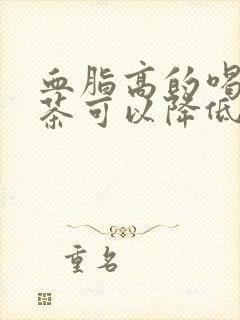 血脂高的喝
茶可以降低
重名